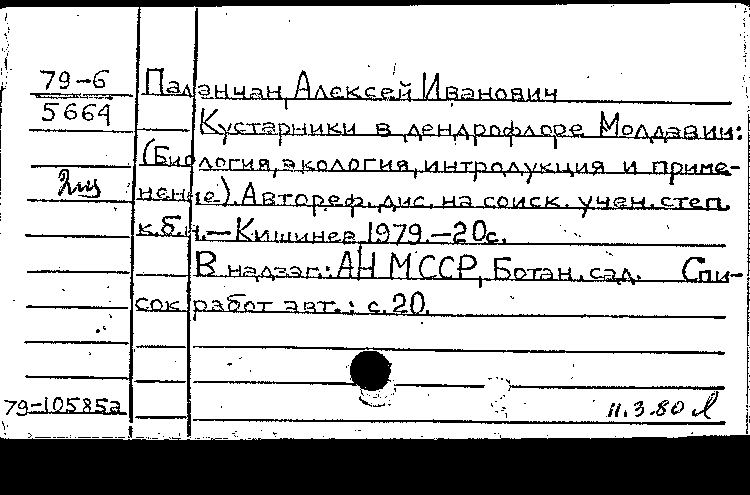 79-6 Паланчан, Алексей Иванович
5664 Кустарники в дендрофлоре Молдавии:
(Биология, экология, интродукция и приме-
нение). Автореф. дис. на соиск. учен. степ.
к.б.н. — Кишинев, 1979. — 20с.
В надзаг.: АН МССР, Ботан. сад. Спи-
сок работ авт.: с. 20.
79-10585а 11.3.80